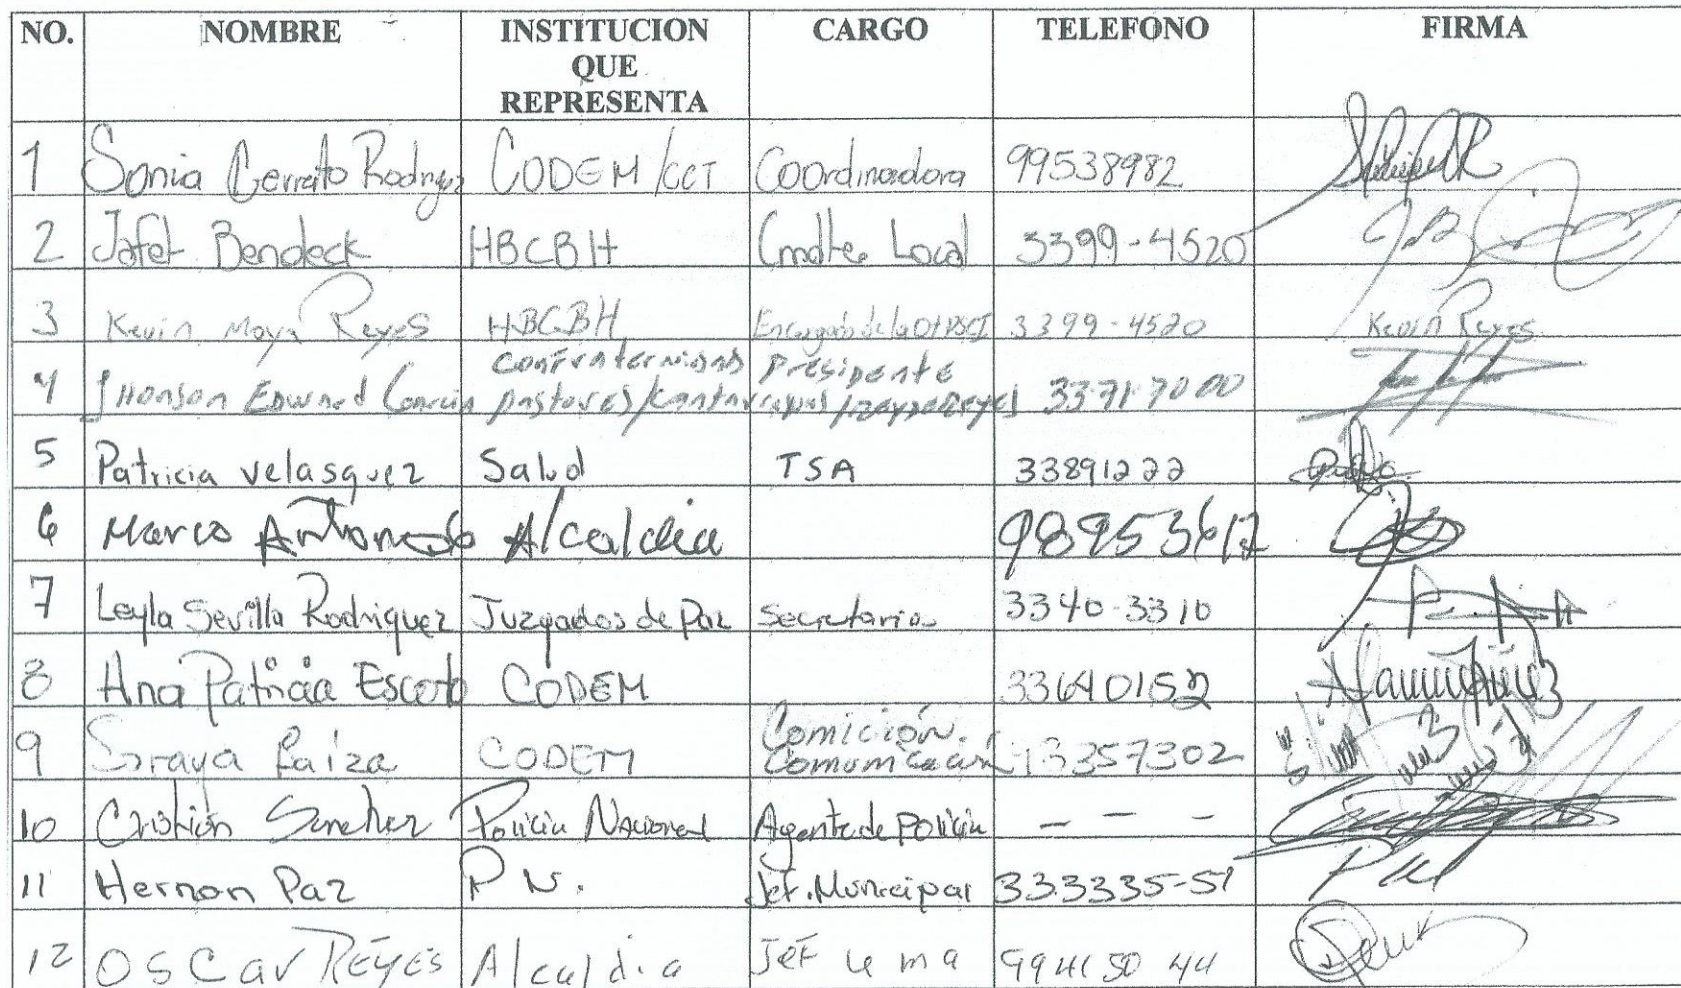 NO. NOMBRE INSTITUCION QUE REPRESENTA CARGO TELEFONO FIRMA
1 Sonia Cerrato Rodriguez CODEM/CCT Coordinadora 99538982
2 Jafet Bendeck HBCBH Cmdte Local 3399-4520
3 Kevin Moya Reyes HBCBH 3399-4520 Kevin Reyes
4 Jhonson Edward García Confraternidad Presidente
pastores/ 3371-7000
5 Patricia velasquez Salud TSA 33891222
6 Marco Alcaldia
7 Leyla Sevilla Rodriguez Juzgados de Paz secretaria 3340-3310
8 Ana Patricia Escoto CODEM 33640152
9 CODEM Comición. Comunicación
10 Cristián Sanchez Policia Nacional Agente de Policia - - -
11 Hernan Paz P N. Jef. Municipal 333335-51
12 OSCar REYES Alcaldia Jef uma